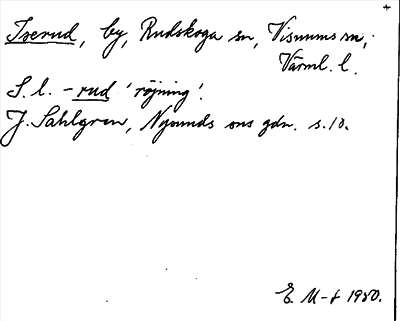 Iserud, by, Rudskoga sn, Visnums sn,
Värml. l.
S. l. -rud 'röjning'.
J. Sahlgren, Nysunds ons gdn. s. 10.
E. M-t 1950.